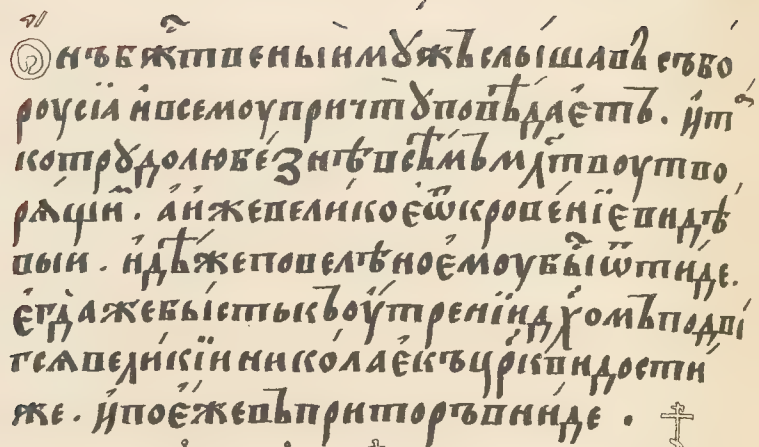 Ѻнъ бжⷭ҇твеныи мꙋжь слы́шавъ съво́
роусїа и҆ всемоу при́чтꙋ повѣ́даетъ . и҆ тⷪ҇
ко трꙋдолюбе́знѣ всѣ́мъ млⷭ҇твоу тво
рѧ́щи̏м . а҆ иже великое ѿкрове́нїе видѣ
выи . и҆дѣ́же повелѣно е҆моу бы̑ ѿи́де .
є҆гда́ же бы́сть къ оу҆трени и҆ дх҃омъ подви
гсѧ вели́кїи никола́е къ цр҃кви достиⷤ
же . и҆ по є҆же въ притворъ вни́де .